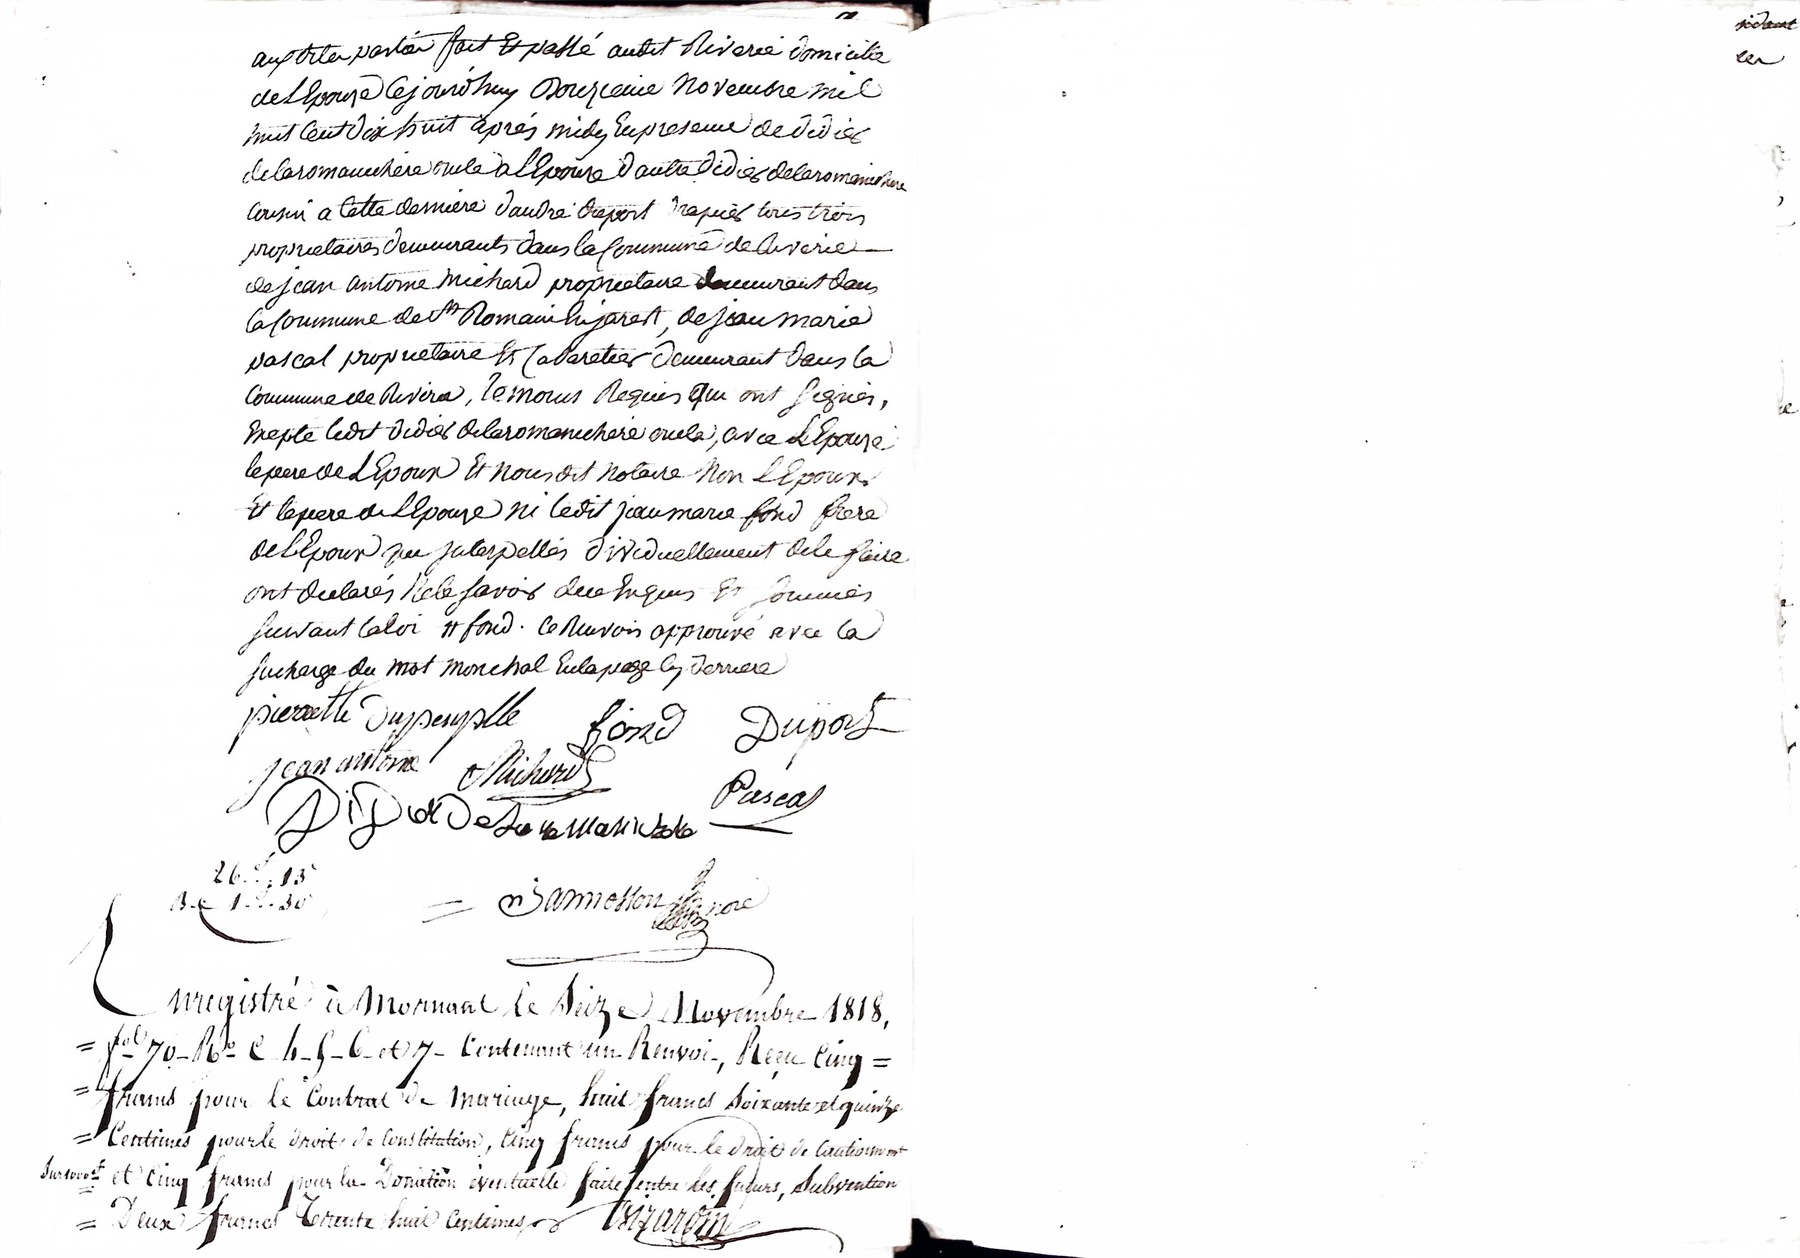 auxdites parties fait Et passé audit Riverie domicille
de L'Epouze Cejourd'huy Douzieme Novembre mil
huit Cent Dix huit après midy En presence de didier
delaromanchere oncle a L'Epouze d'autre didier delaromanchere
Cousin a Cette derniere d'andré duport drapier tous trois
proprietaires demeurants dans la Commune de Riverie
de jean antoine Michard proprietaire demeurant dans
la Commune de St Romain En jarest, de jean marie
pascal proprietaire Et Cabaretier demeurant dans la
Commune de Riverie, temoins Requis Qui ont signés,
Excepté ledit didier delaromanchere oncle, avec L'Epouze
le pere de L'Epoux Et Nous dit Notaire Non L'Epoux
Et le pere de L'Epouze ni ledit jean marie fond frere
de L'Epoux qui interpellés dividuellement de le faire
ont declarés Ne le savoir de ce Enquis Et sommés
suivant la loi # fond. Ce Renvois approuvé avec la
sucharge du mot monchal En la page Cy derriere
pierrette Dupeuplle fond Duport
jean antoine Michard Pascal
Didier De La romanchere
26.. 15
1.. 30
= Jannesson nore
Enregistré à Mornant le Seize Novembre 1818,
= fol 70 Ro C 4-5-6 et 7 - Contenant un Renvoi, Reçu Cinq =
= francs pour le Contrat de mariage, huit francs Soixante et quinze
= Centimes pour le droit de Constitution, Cinq francs pour le droit de Cautionnemt
Sur 1000 f et Cinq francs pour la Donation éventuelle faite entre les futurs, Subvention
= Deux francs Trente huit Centimes